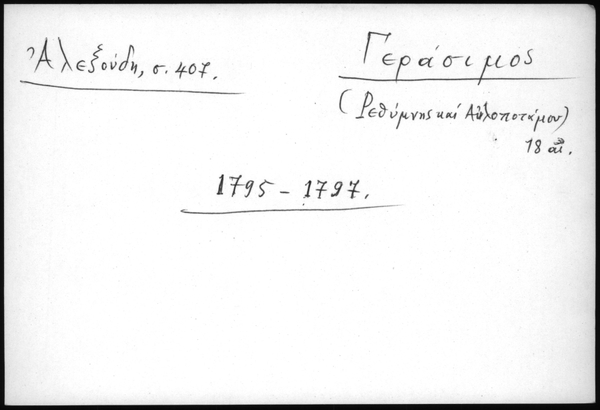 Ἀλεξούδη, σ. 407.
Γεράσιμος
(Ρεθύμνης καί Αὐλοποτάμου)
18 αἰ.
1795 – 1797.